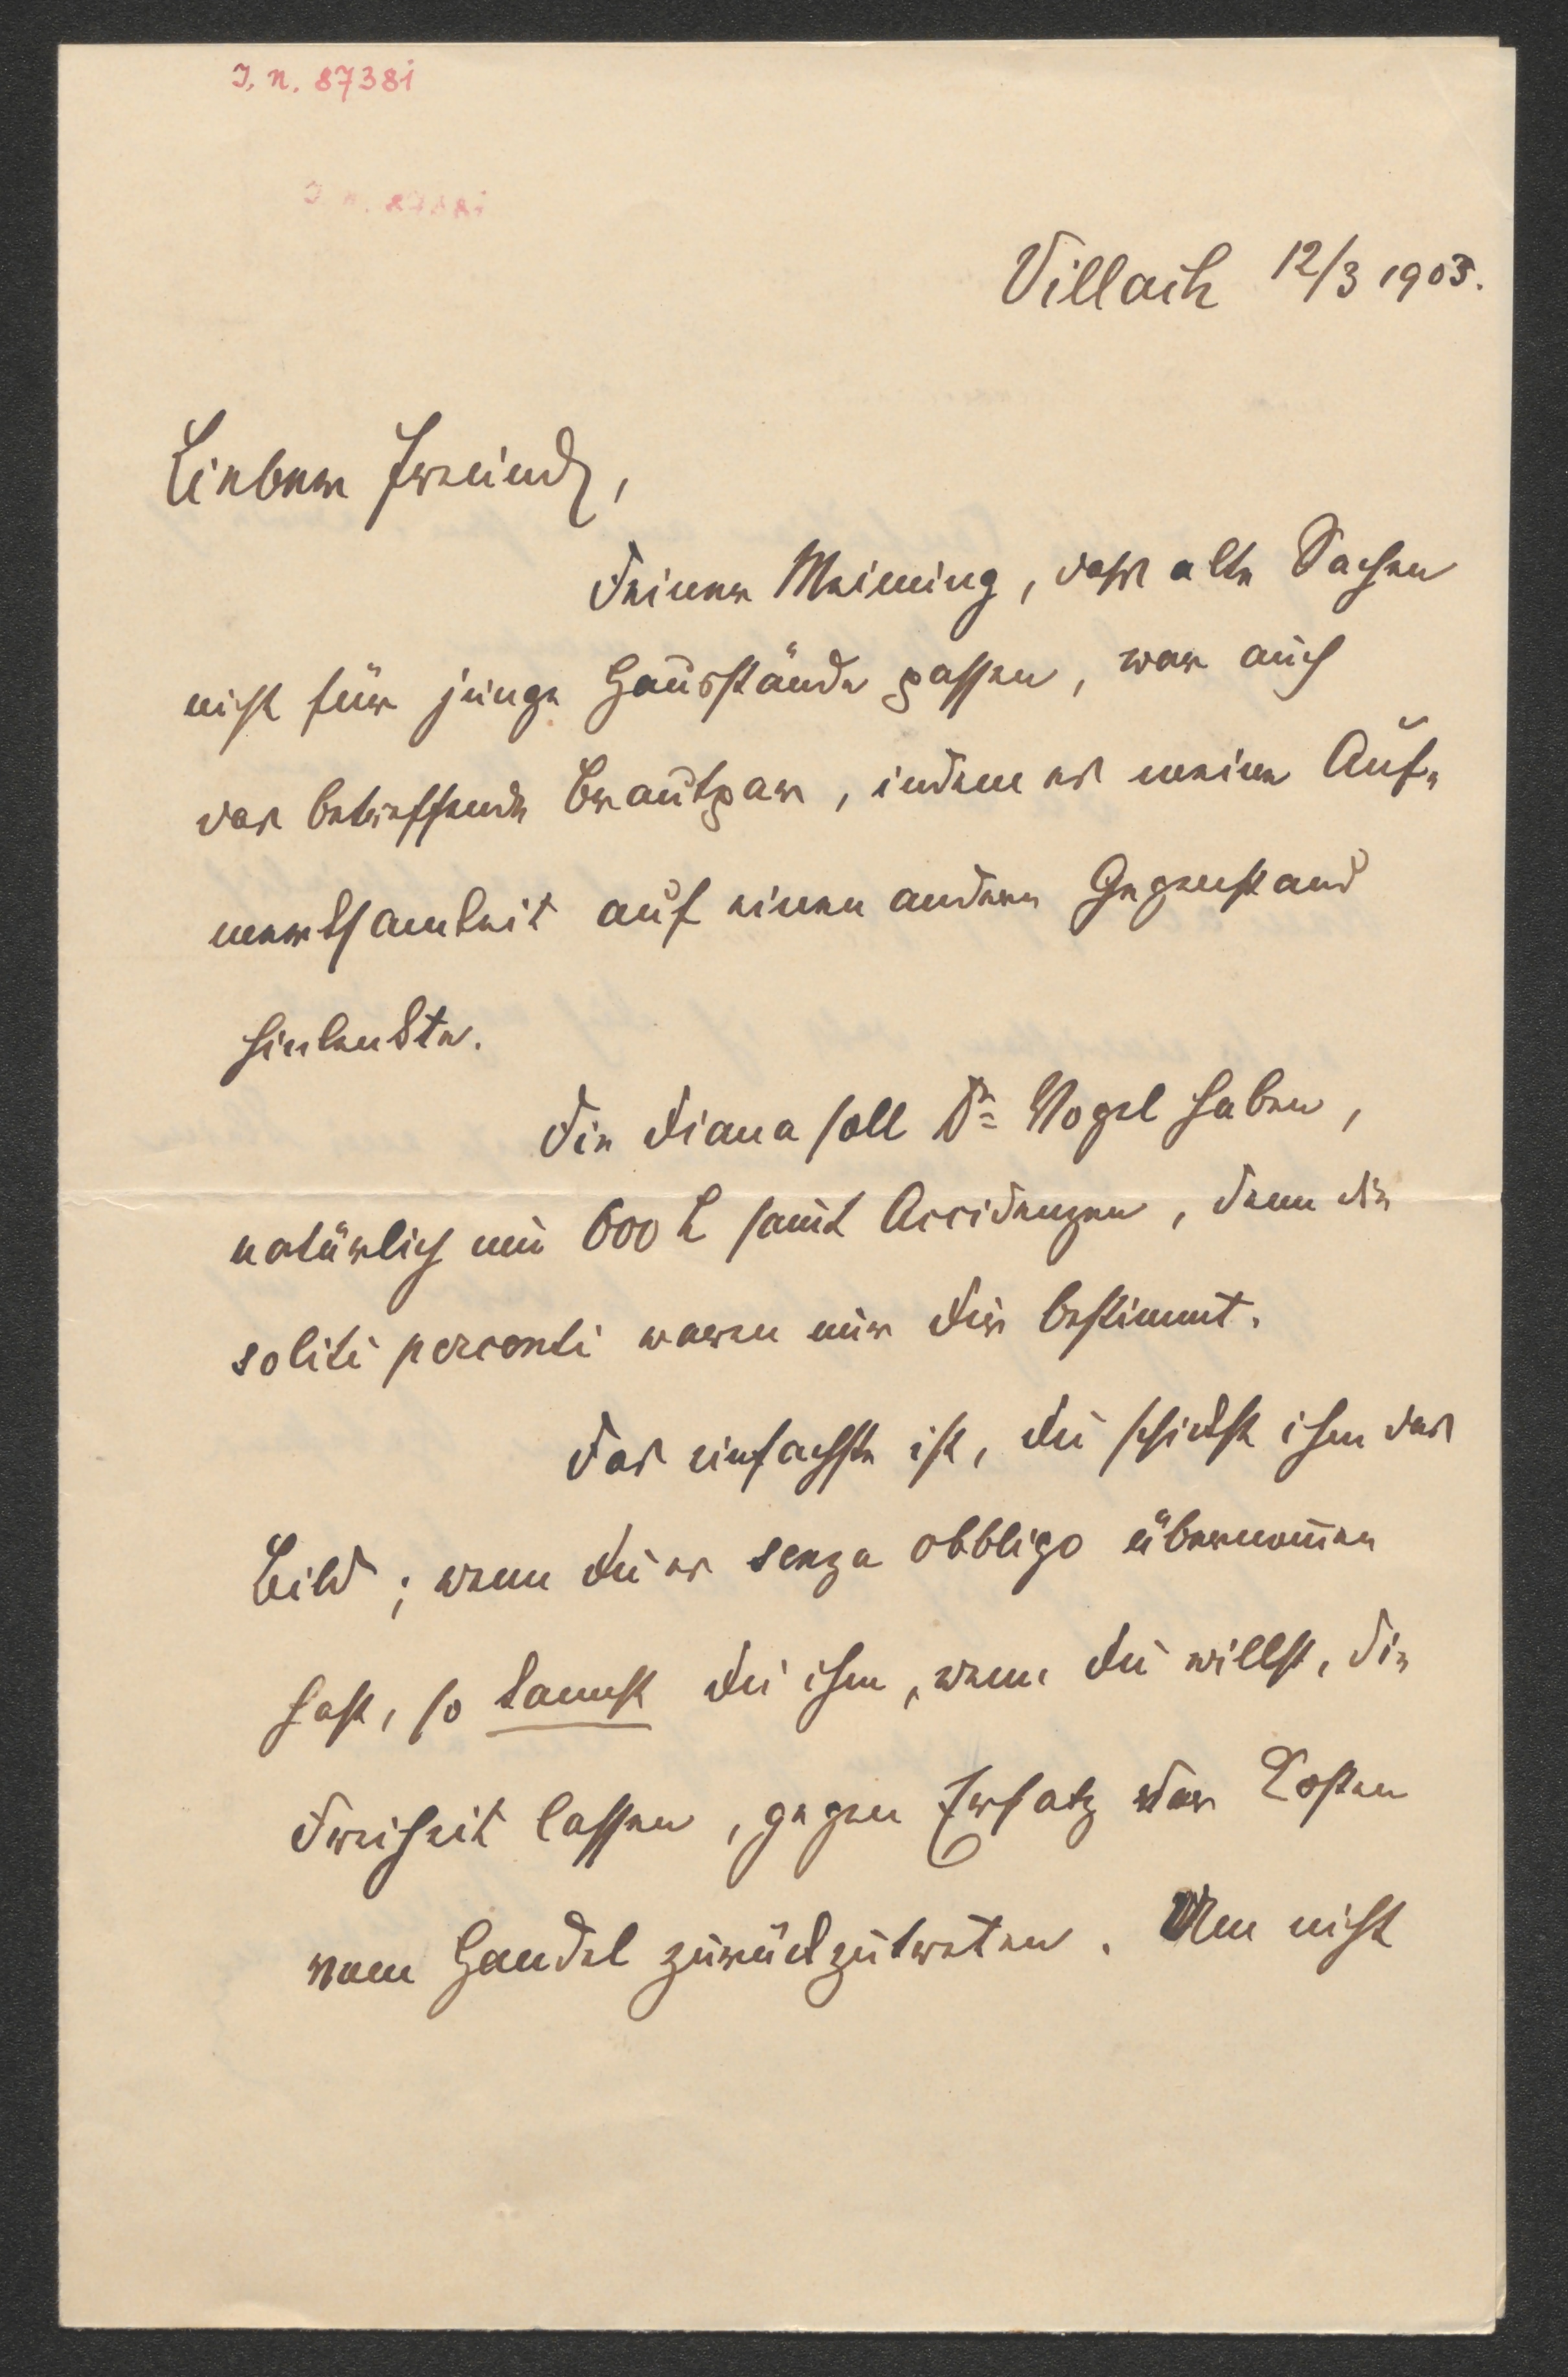 J. N. 87381
J. N. 87381
Villach 12/3 1903.
Lieber Freund,
Deiner Meinung, dass alte Sachen
nicht für junge Hausstände passen, war auch
das betreffende Brautpaar, indem es meine Auf-
merksamkeit auf einen andern Gegenstand
hinlenkte.
Die Diana soll Dr Vogel haben,
natürlich um 600 L samt Accidenzen, denn die
soliti perconti waren nur Dir bestimmt.
Das einfachste ist, Du schickst ihm das
Bild; wenn Du es senza obbligo übernom̅en
hast, so kannst Du ihm, wenn Du willst, die
Freiheit lassen, gegen Ersatz der Kosten
vom Handel zurückzutreten. Um nicht